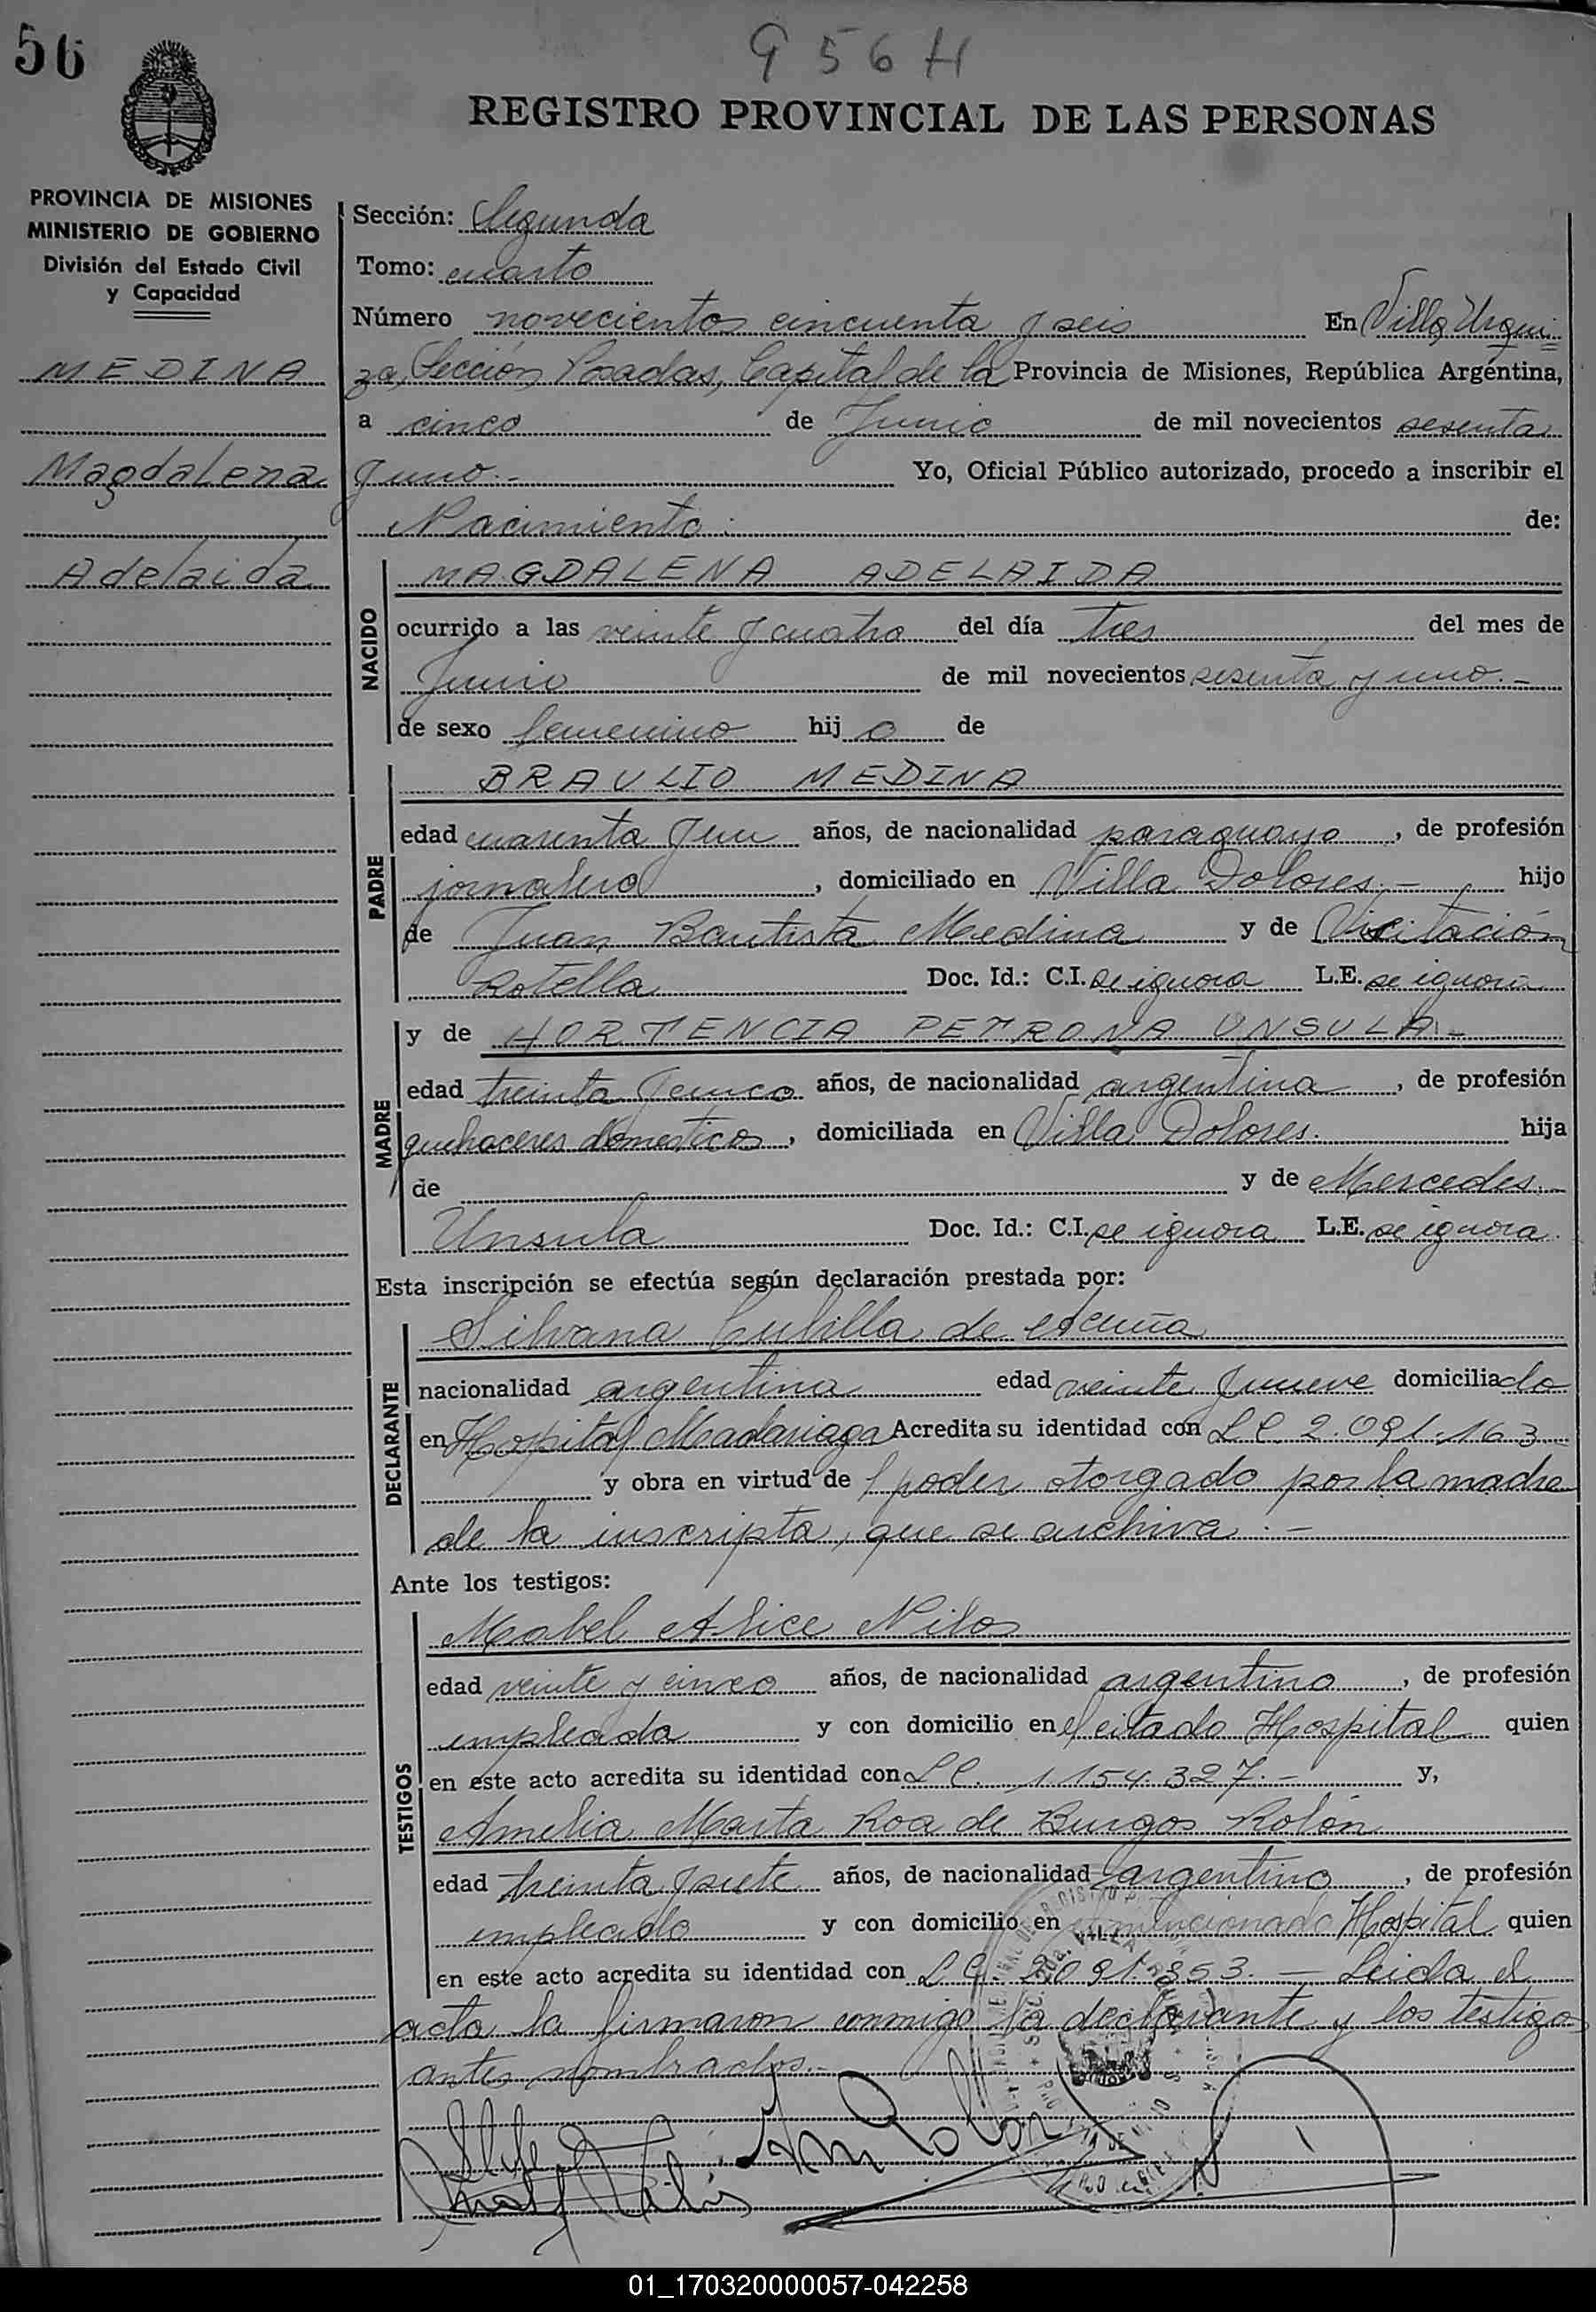 56
956H
REGISTRO PROVINCIAL DE LAS PERSONAS
PROVINCIA DE MISIONES
MINISTERIO DE GOBIERNO
División del Estado Civil
y Capacidad
MEDINA
Magdalena
Adelaida
Sección: Segunda
Tomo: cuarto
Número novecientos cincuenta y seis En Villa Urqui
za, Sección Posadas, Capital de la Provincia de Misiones, República Argentina,
a cinco de Junio de mil novecientos sesenta
y uno.- Yo, Oficial Público autorizado, procedo a inscribir el
Nacimiento de:
NACIDO
MAGDALENA ADELAIDA
ocurrido a las veinte y cuatro del día tres del mes de
Junio de mil novecientos sesenta y uno.-
de sexo femenino hij a de
PADRE
BRAULIO MEDINA
edad cuarenta y un años, de nacionalidad paraguayo, de profesión
jornalero, domiciliado en Villa Dolores.- hijo
de Juan Bautista Medina y de Visitación
Rotella Doc. Id.: C.I. se ignora L.E. se ignora
MADRE
y de HORTENCIA PETRONA UNSULA.-
edad treinta y cinco años, de nacionalidad argentina, de profesión
quehaceres domesticos, domiciliada en Villa Dolores. hija
de y de Mercedes
Unsula Doc. Id.: C.I. se ignora L.E. se ignora.
Esta inscripción se efectúa según declaración prestada por:
DECLARANTE
Silvana Cubilla de Acuña
nacionalidad argentina edad veinte y nueve domiciliado
en Hospital Madariaga Acredita su identidad con LC 2.091.163
y obra en virtud de poder otorgado por la madre
de la inscripta, que se archiva.-
Ante los testigos:
TESTIGOS
Mabel Alice
edad veinte y cinco años, de nacionalidad argentina, de profesión
empleada y con domicilio en el citado Hospital quien
en este acto acredita su identidad con LC. 1154.327.- y,
Amelia Marta Roa de Burgos Rolón
edad treinta y siete años, de nacionalidad argentina, de profesión
empleada y con domicilio en el mencionado Hospital quien
en este acto acredita su identidad con L.C. 2091.853.- Leida el
acta la firmaron conmigo la declarante y los testigos
antes nombrados.-
01_170320000057-042258